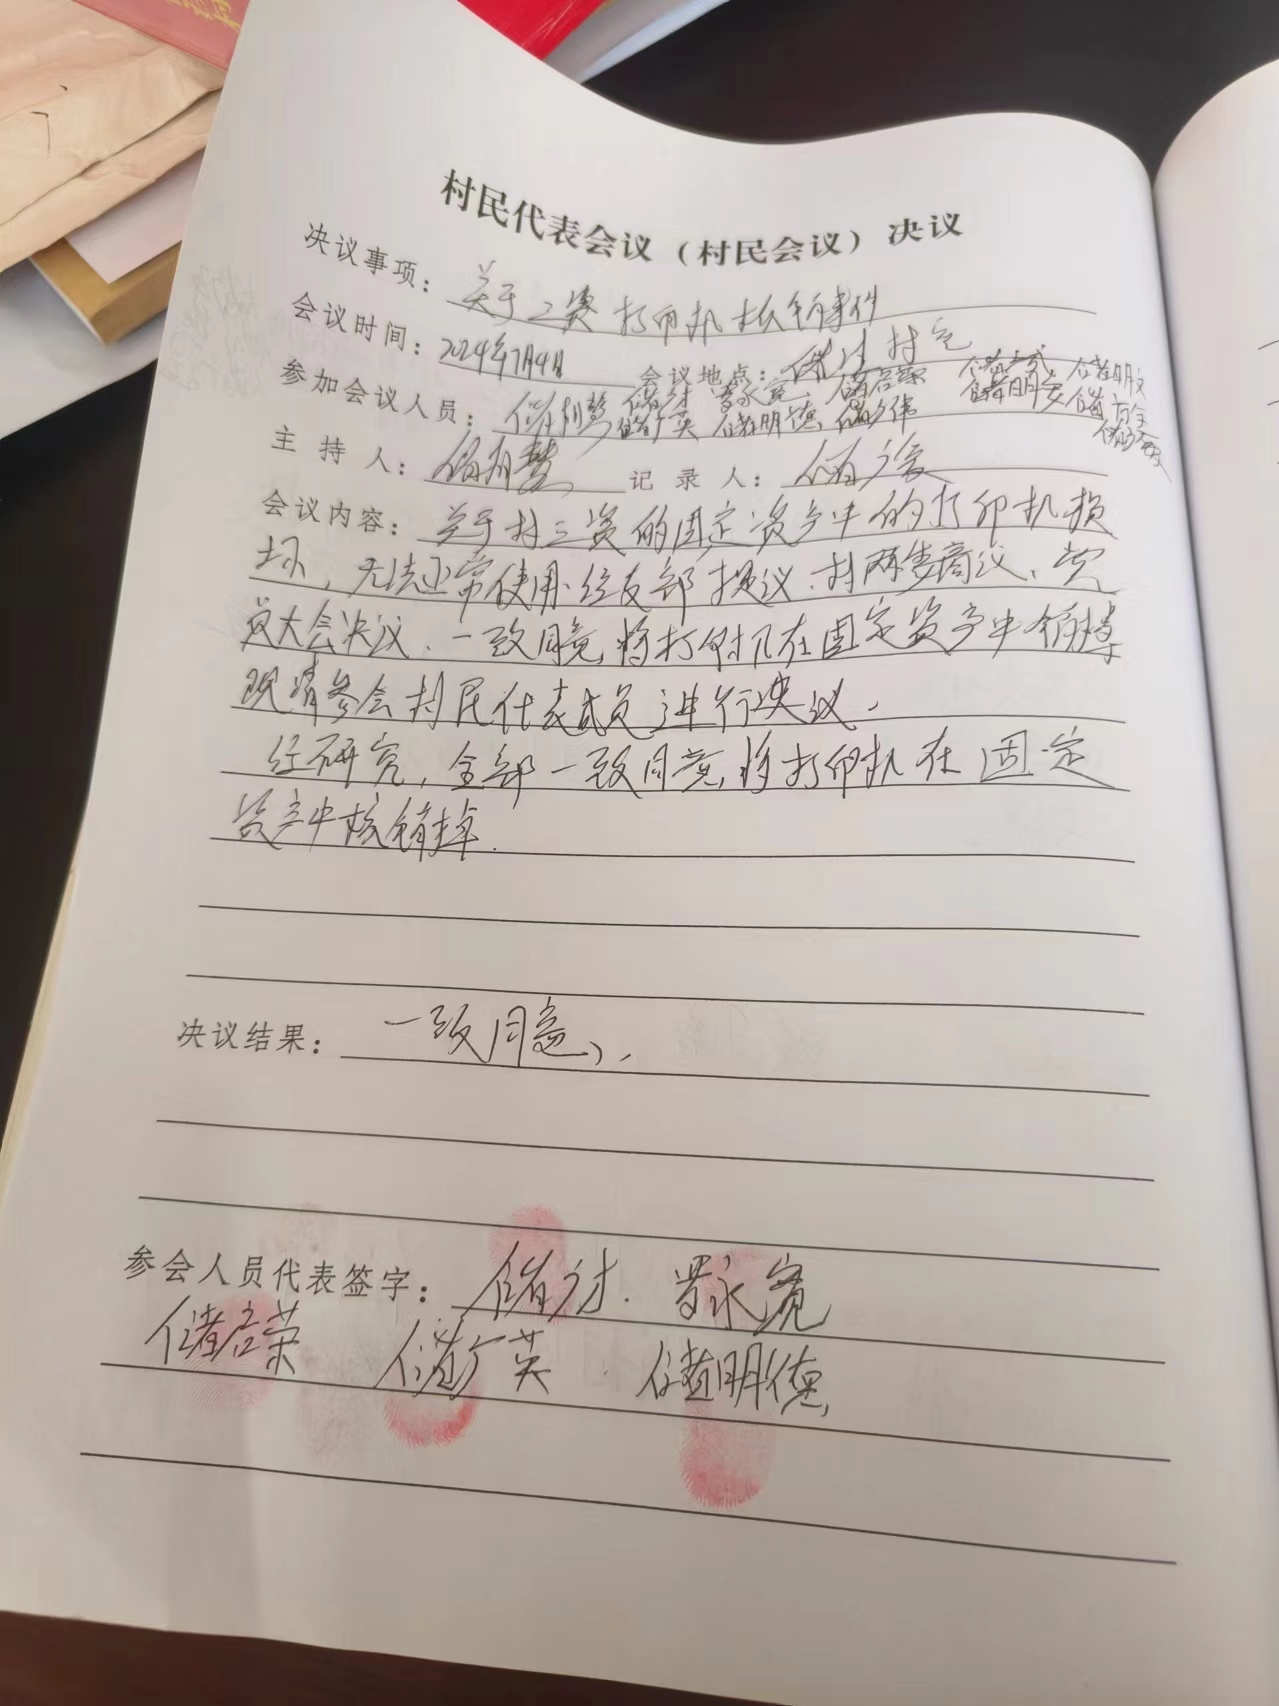 村民代表会议（村民会议）决议
决议事项：关于三资打印机核销事件
会议时间：2024年7月4日 会议地点：村
参加会议人员：储 储方才 罗永宽 储启荣 储明文
储广英 储明德 储明安
主持人： 记录人：储
会议内容：关于村三资的固定资产中的打印机损
坏，无法正常使用.经支部提议.村两委商议、党
员大会决议.一致同意,将打印机在固定资产中销掉
现请参会村民代表成员进行决议.
经研究，全部一致同意,将打印机在固定
资产中核销掉.
决议结果：一致同意、.
参会人员代表签字：储方才.罗永宽
储启荣 储广英 储明德